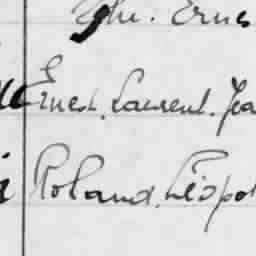 Ernes
Ernest. Laurent. Jea
Roland. Léopol